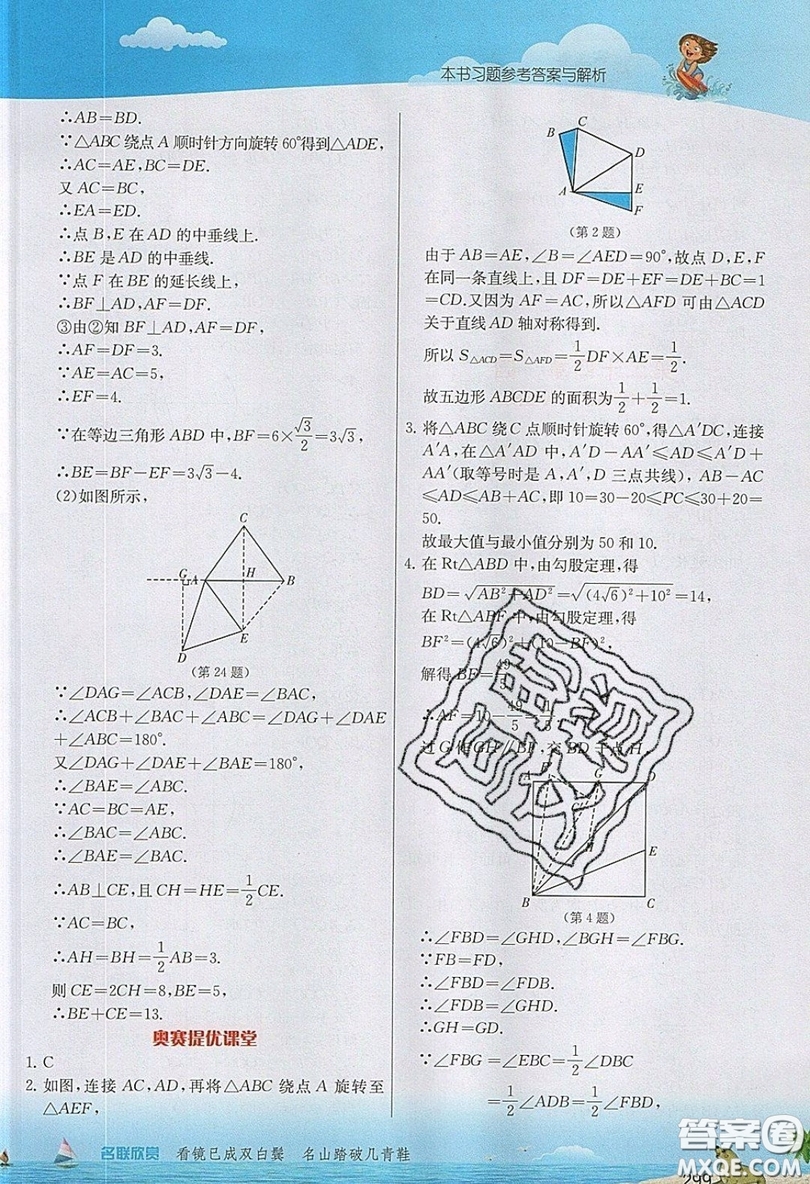 本书习题参考答案与解析
∴AB=BD.
∵△ABC绕点A顺时针方向旋转60°得到△ADE,
∴AC=AE,BC=DE.
又AC=BC,
∴EA=ED.
∴点B,E在AD的中垂线上.
∴BE是AD的中垂线.
∵点F在BE的延长线上,
∴BF⊥AD,AF=DF.
③由②知BF⊥AD,AF=DF.
∴AF=DF=3.
∵AE=AC=5,
∴EF=4.
∵在等边三角形ABD中,BF=6×√3/2=3√3,
∴BE=BF-EF=3√3-4.
(2)如图所示,
C
G A H B
E
D
(第24题)
∵∠DAG=∠ACB,∠DAE=∠BAC,
∴∠ACB+∠BAC+∠ABC=∠DAG+∠DAE
+∠ABC=180°.
又∠DAG+∠DAE+∠BAE=180°,
∴∠BAE=∠ABC.
∵AC=BC=AE,
∴∠BAC=∠ABC.
∴∠BAE=∠BAC.
∴AB⊥CE,且CH=HE=1/2CE.
∵AC=BC,
∴AH=BH=1/2AB=3.
则CE=2CH=8,BE=5,
∴BE+CE=13.
奥赛提优课堂
1. C
2. 如图,连接AC,AD,再将△ABC绕点A旋转至
△AEF,
C
B
D
A E
F
(第2题)
由于AB=AE,∠B=∠AED=90°,故点D,E,F
在同一条直线上,且DF=DE+EF=DE+BC=1
=CD.又因为AF=AC,所以△AFD可由△ACD
关于直线AD轴对称得到.
所以S△ACD=S△AFD=1/2DF×AE=1/2.
故五边形ABCDE的面积为1/2+1/2=1.
3. 将△ABC绕C点顺时针旋转60°,得△A′DC,连接
A′A,在△A′AD中,A′D-AA′≤AD≤A′D+
AA′(取等号时是A,A′,D三点共线),AB-AC
≤AD≤AB+AC,即10=30-20≤PC≤30+20=
50.
故最大值与最小值分别为50和10.
4. 在Rt△ABD中,由勾股定理,得
BD=√AB²+AD²=√(4√6)²+10²=14,
在Rt△ABF中,由勾股定理,得
BF²=(4√6)²+(10-BF)²,
解得BF=49/5.
∴AF=10-49/5=1/5.
过G作GH∥BF,交BD于点H,
E
B C
(第4题)
∴∠FBD=∠GHD,∠BGH=∠FBG.
∵FB=FD,
∴∠FBD=∠FDB.
∴∠FDB=∠GHD.
∴GH=GD.
∵∠FBG=∠EBC=1/2∠DBC
=1/2∠ADB=1/2∠FBD,
名联欣赏 看镜已成双白鬓 名山踏破几青鞋
答案圈
MXQE.COM